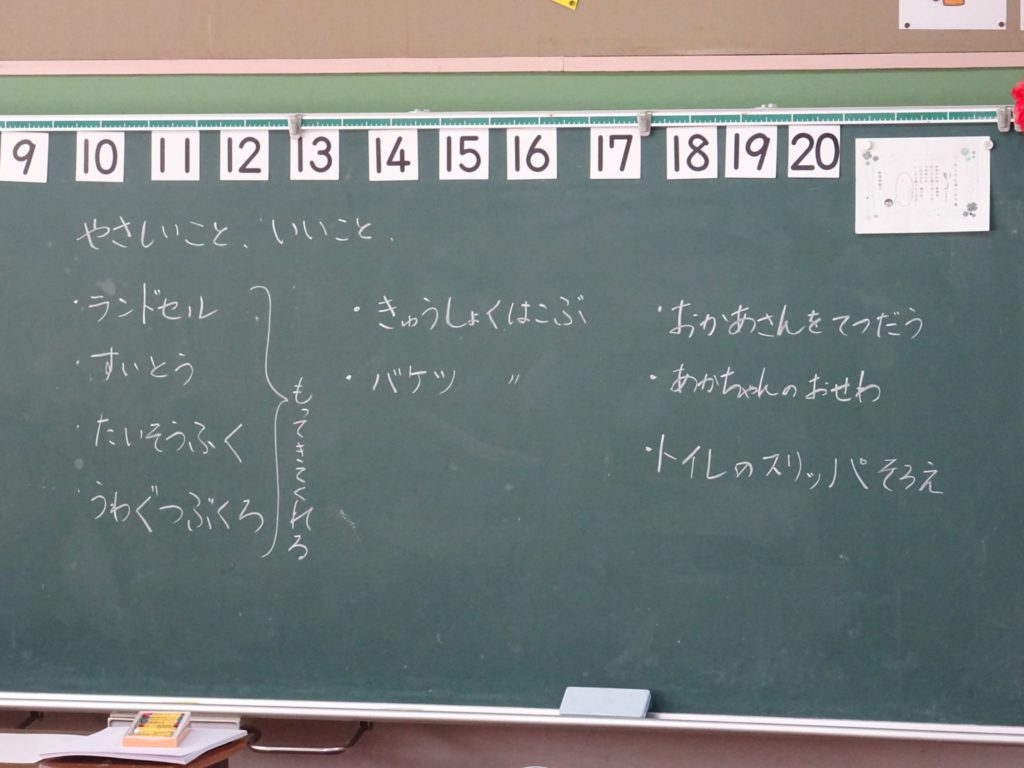 9 10 11 12 13 14 15 16 17 18 19 20
やさしいこと、いいこと.
・ランドセル
・すいとう
・たいそうふく
・うわぐつぶくろ
もってきてくれる
・きゅうしょくはこぶ
・バケツ 〃
・おかあさんをてつだう
・あかちゃんのおせわ
・トイレのスリッパそろえ